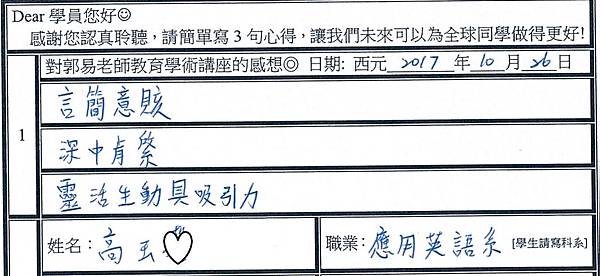 Dear 學員您好☺
感謝您認真聆聽，請簡單寫 3 句心得，讓我們未來可以為全球同學做得更好!
對郭易老師教育學術講座的感想◎ 日期: 西元 2017 年 10 月 26 日
1
言簡意賅
深中肯綮
靈活生動具吸引力
姓名：高玉♡ 職業：應用英語系 [學生請寫科系]